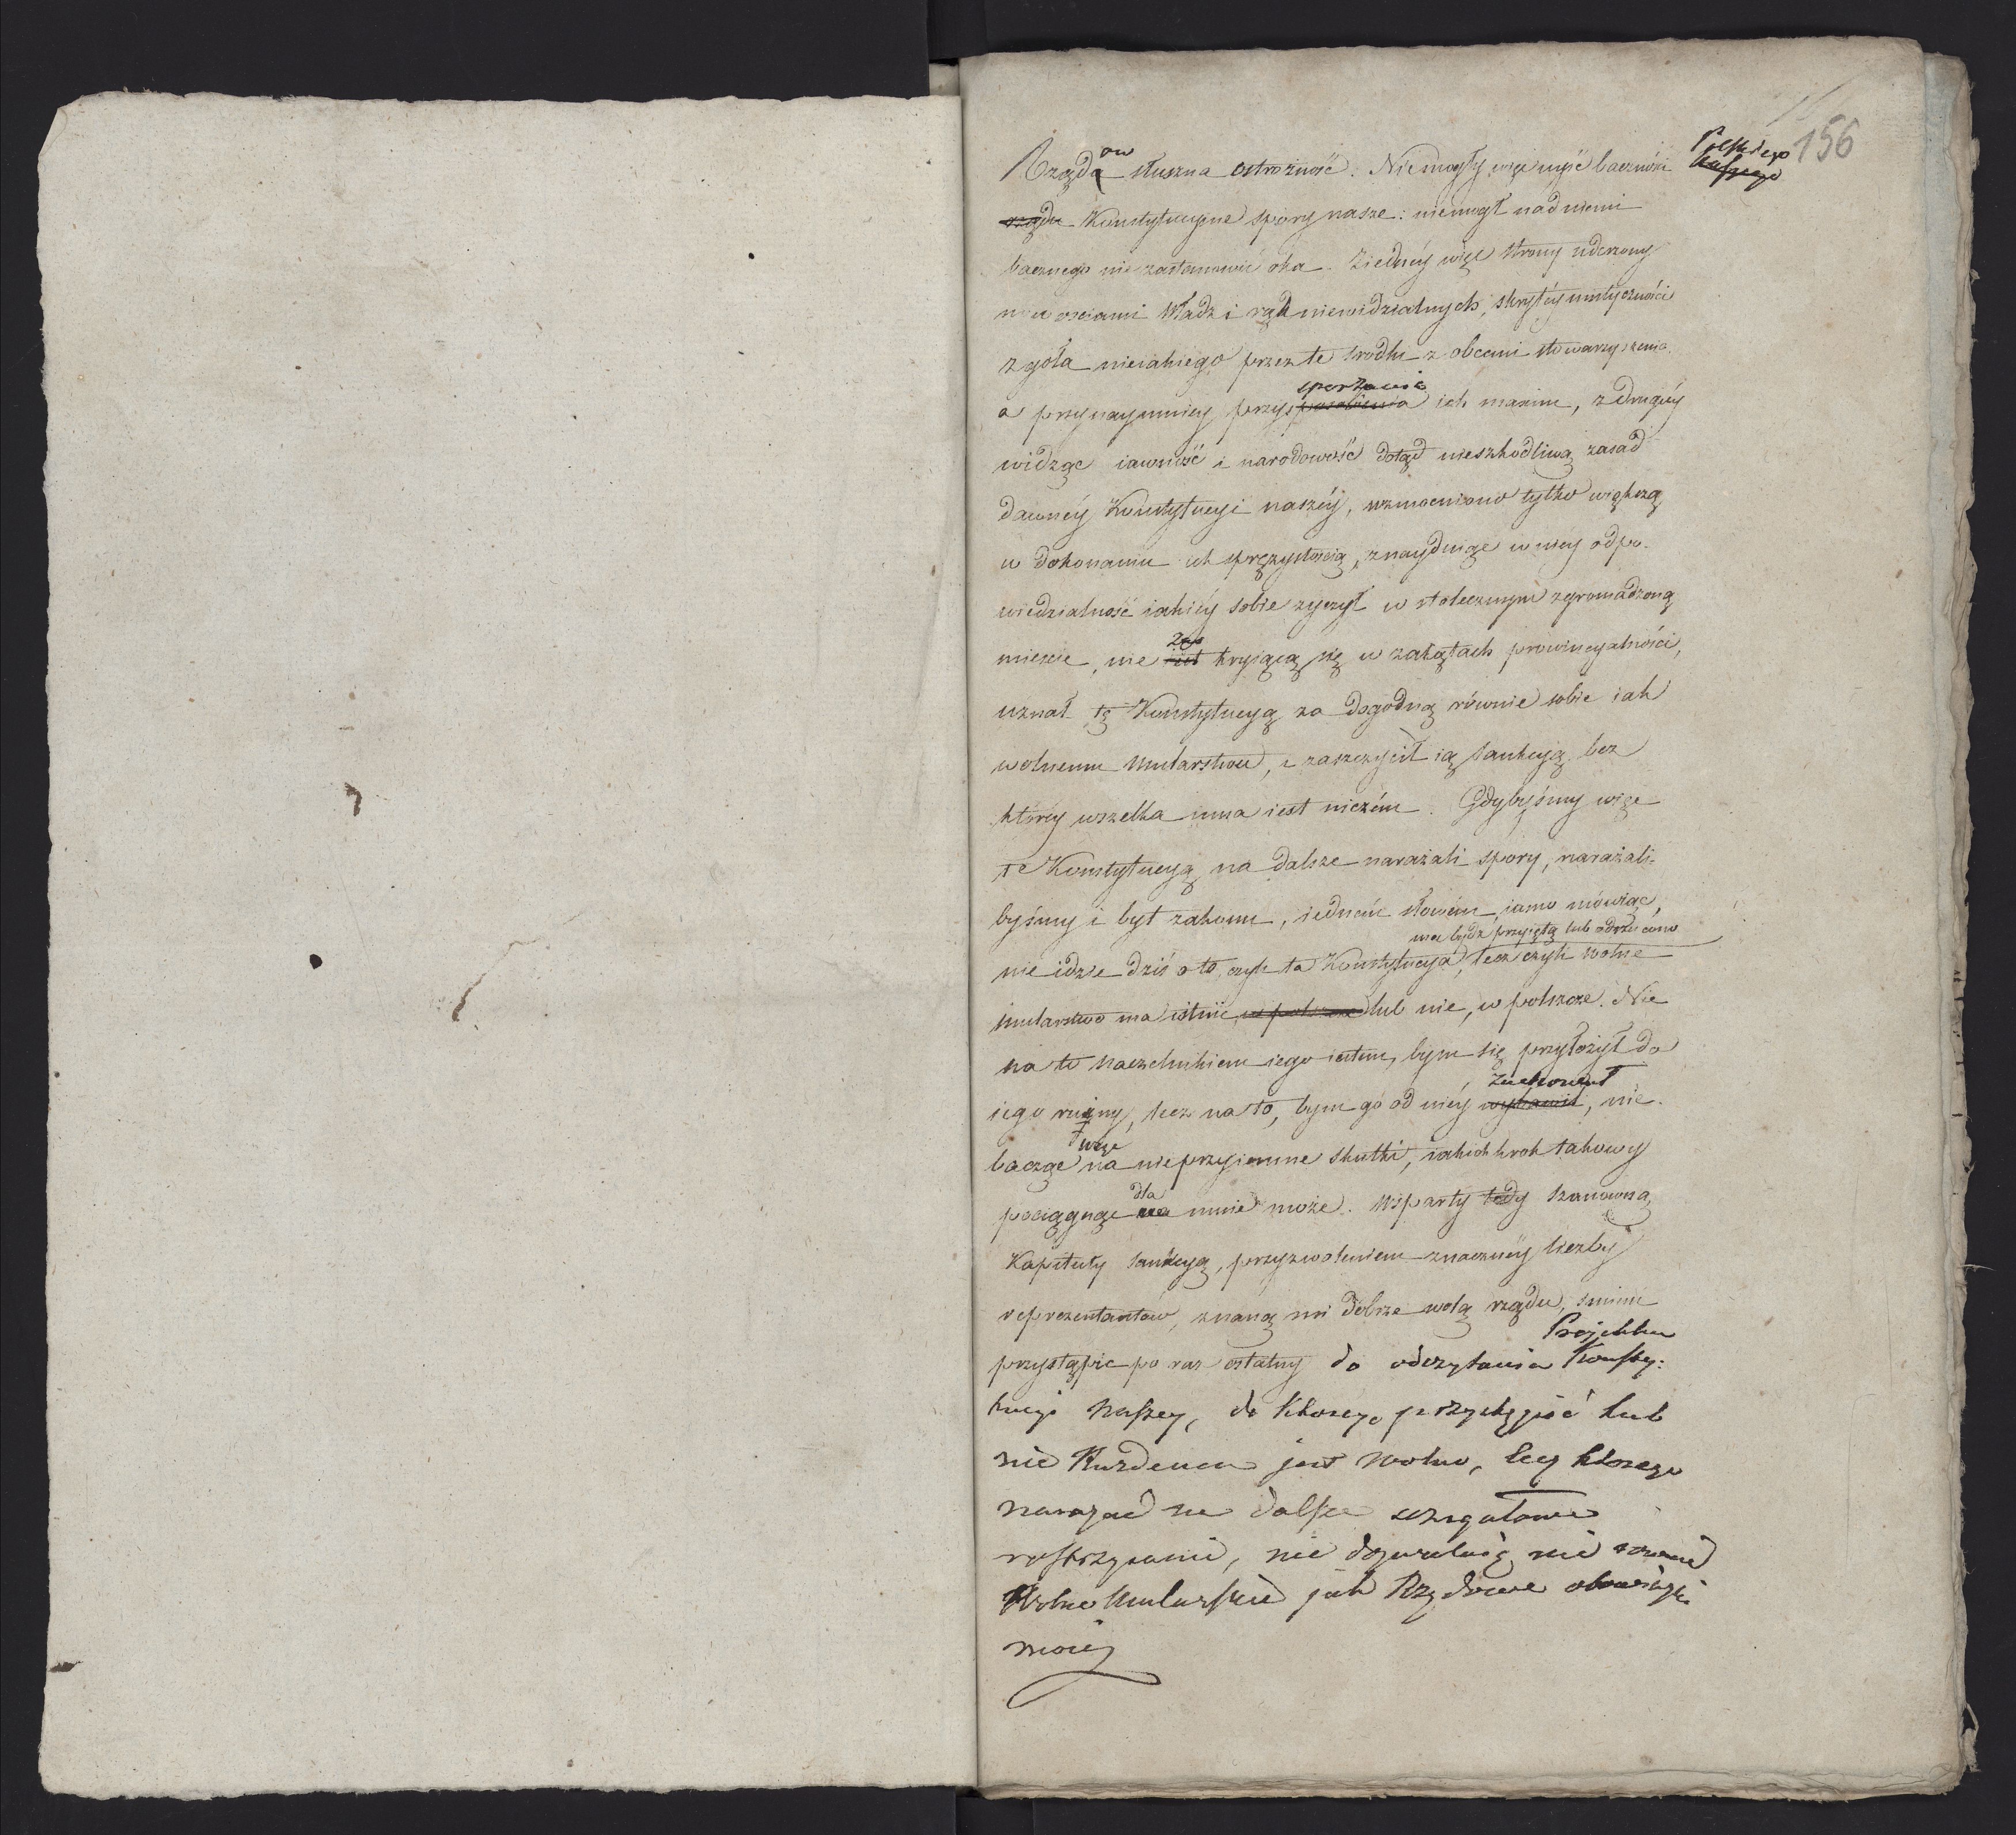 156
Rządów słuszna ostrożność. Niemogły więc uyść baczności Polskiego naszego
rządu Konstytucyine spory nasze: niemogł nad niemi
bacznego nie zastanowić oka. Ziedney więc strony uderzony
nowościami Władz i rąk niewidzialnych, skrytéy mistyczności
zgoła nieiakiego przez te srodki z obcemi stowarzyszenia
sporzenia
a przynaymniey przysposobienia ich maxim, z drugiéy
widząc iawność i narodowość dotąd nieszkodliwą zasad
dawnéy Konstytucyi naszéy, wzmocniono tylko większą
w dokonaniu ich sprężystością, znayduiąc w niéy odpo-
wiedzialność iakiéy sobie zyczył w stołecznym zgromadzoną
zaś
miescie, nie iest kryiącą się w zakątach prowincyalności,
uznał tę Konstytucyą za dogodną równie sobie iak
wolnemu Mularstwu, i zaszczycił ią sankcyą bez
któréy wszelka inna iest niczém. Gdybyśmy więc
te Konstytucyą na dalsze narażali spory, narażali-
byśmy i byt zakonu, iedném słowém iasno mówiąc,
ma bydź przyiętą lub odrzucono
nie idzie dziś o to, czyli ta Konstytucya, lecz czyli wolne
Mularstwo ma istnić w polszcze lub nie, w polszcze. Nie
na to Naczelnikiem iego iestem, bym się przyłożył do
zachował
iego ruiny, lecz na to, bym go od niéy wybawił, nie
więc
bacząc na nieprzyiemne skutki, iakich krok takowy
dla
pociągnąć na mnie może. Wsparty tedy szanowną
Kapituły sankcyą, przyzwoleniem znacznéy liczby
reprezentantów, znaną mi dobrze wolą rządu, śmiem
Projektu
przystąpić po raz ostatny do odczytania Konsty:
tucyi Naszey, do którego przystąpić lub
nie Każdemu jest wolno, lecz którego
narażać na dalsze
roztrząsanie, nie dozwalaią nie rownie
Wolno Mularskie jak Rządowe obowiązki
moie